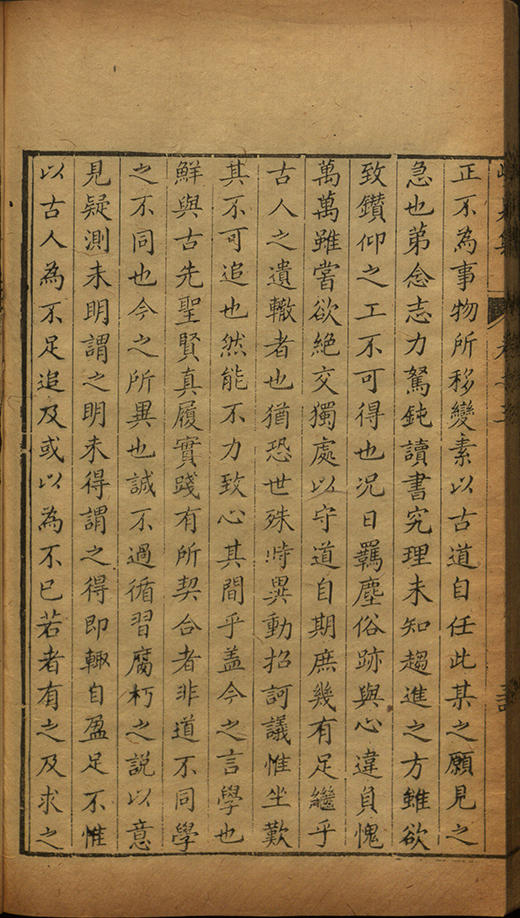 正不為事物所移變素以古道自任此某之願見之
急也第念志力駑鈍讀書究理未知趨進之方雖欲
致鑽仰之工不可得也况日羈塵俗跡與心違負愧
萬萬雖嘗欲絶交獨處以守道自期庶幾有足繼乎
古人之遺轍者也猶恐世殊時異動招訶議惟坐歎
其不可追也然能不力致心其間乎盖今之言學也
鮮與古先聖賢真履實踐有所契合者非道不同學
之不同也今之所異也誠不過循習腐朽之說以意
見疑測未明謂之明未得謂之得即輙自盈足不惟
以古人為不足追及或以為不已若者有之及求之